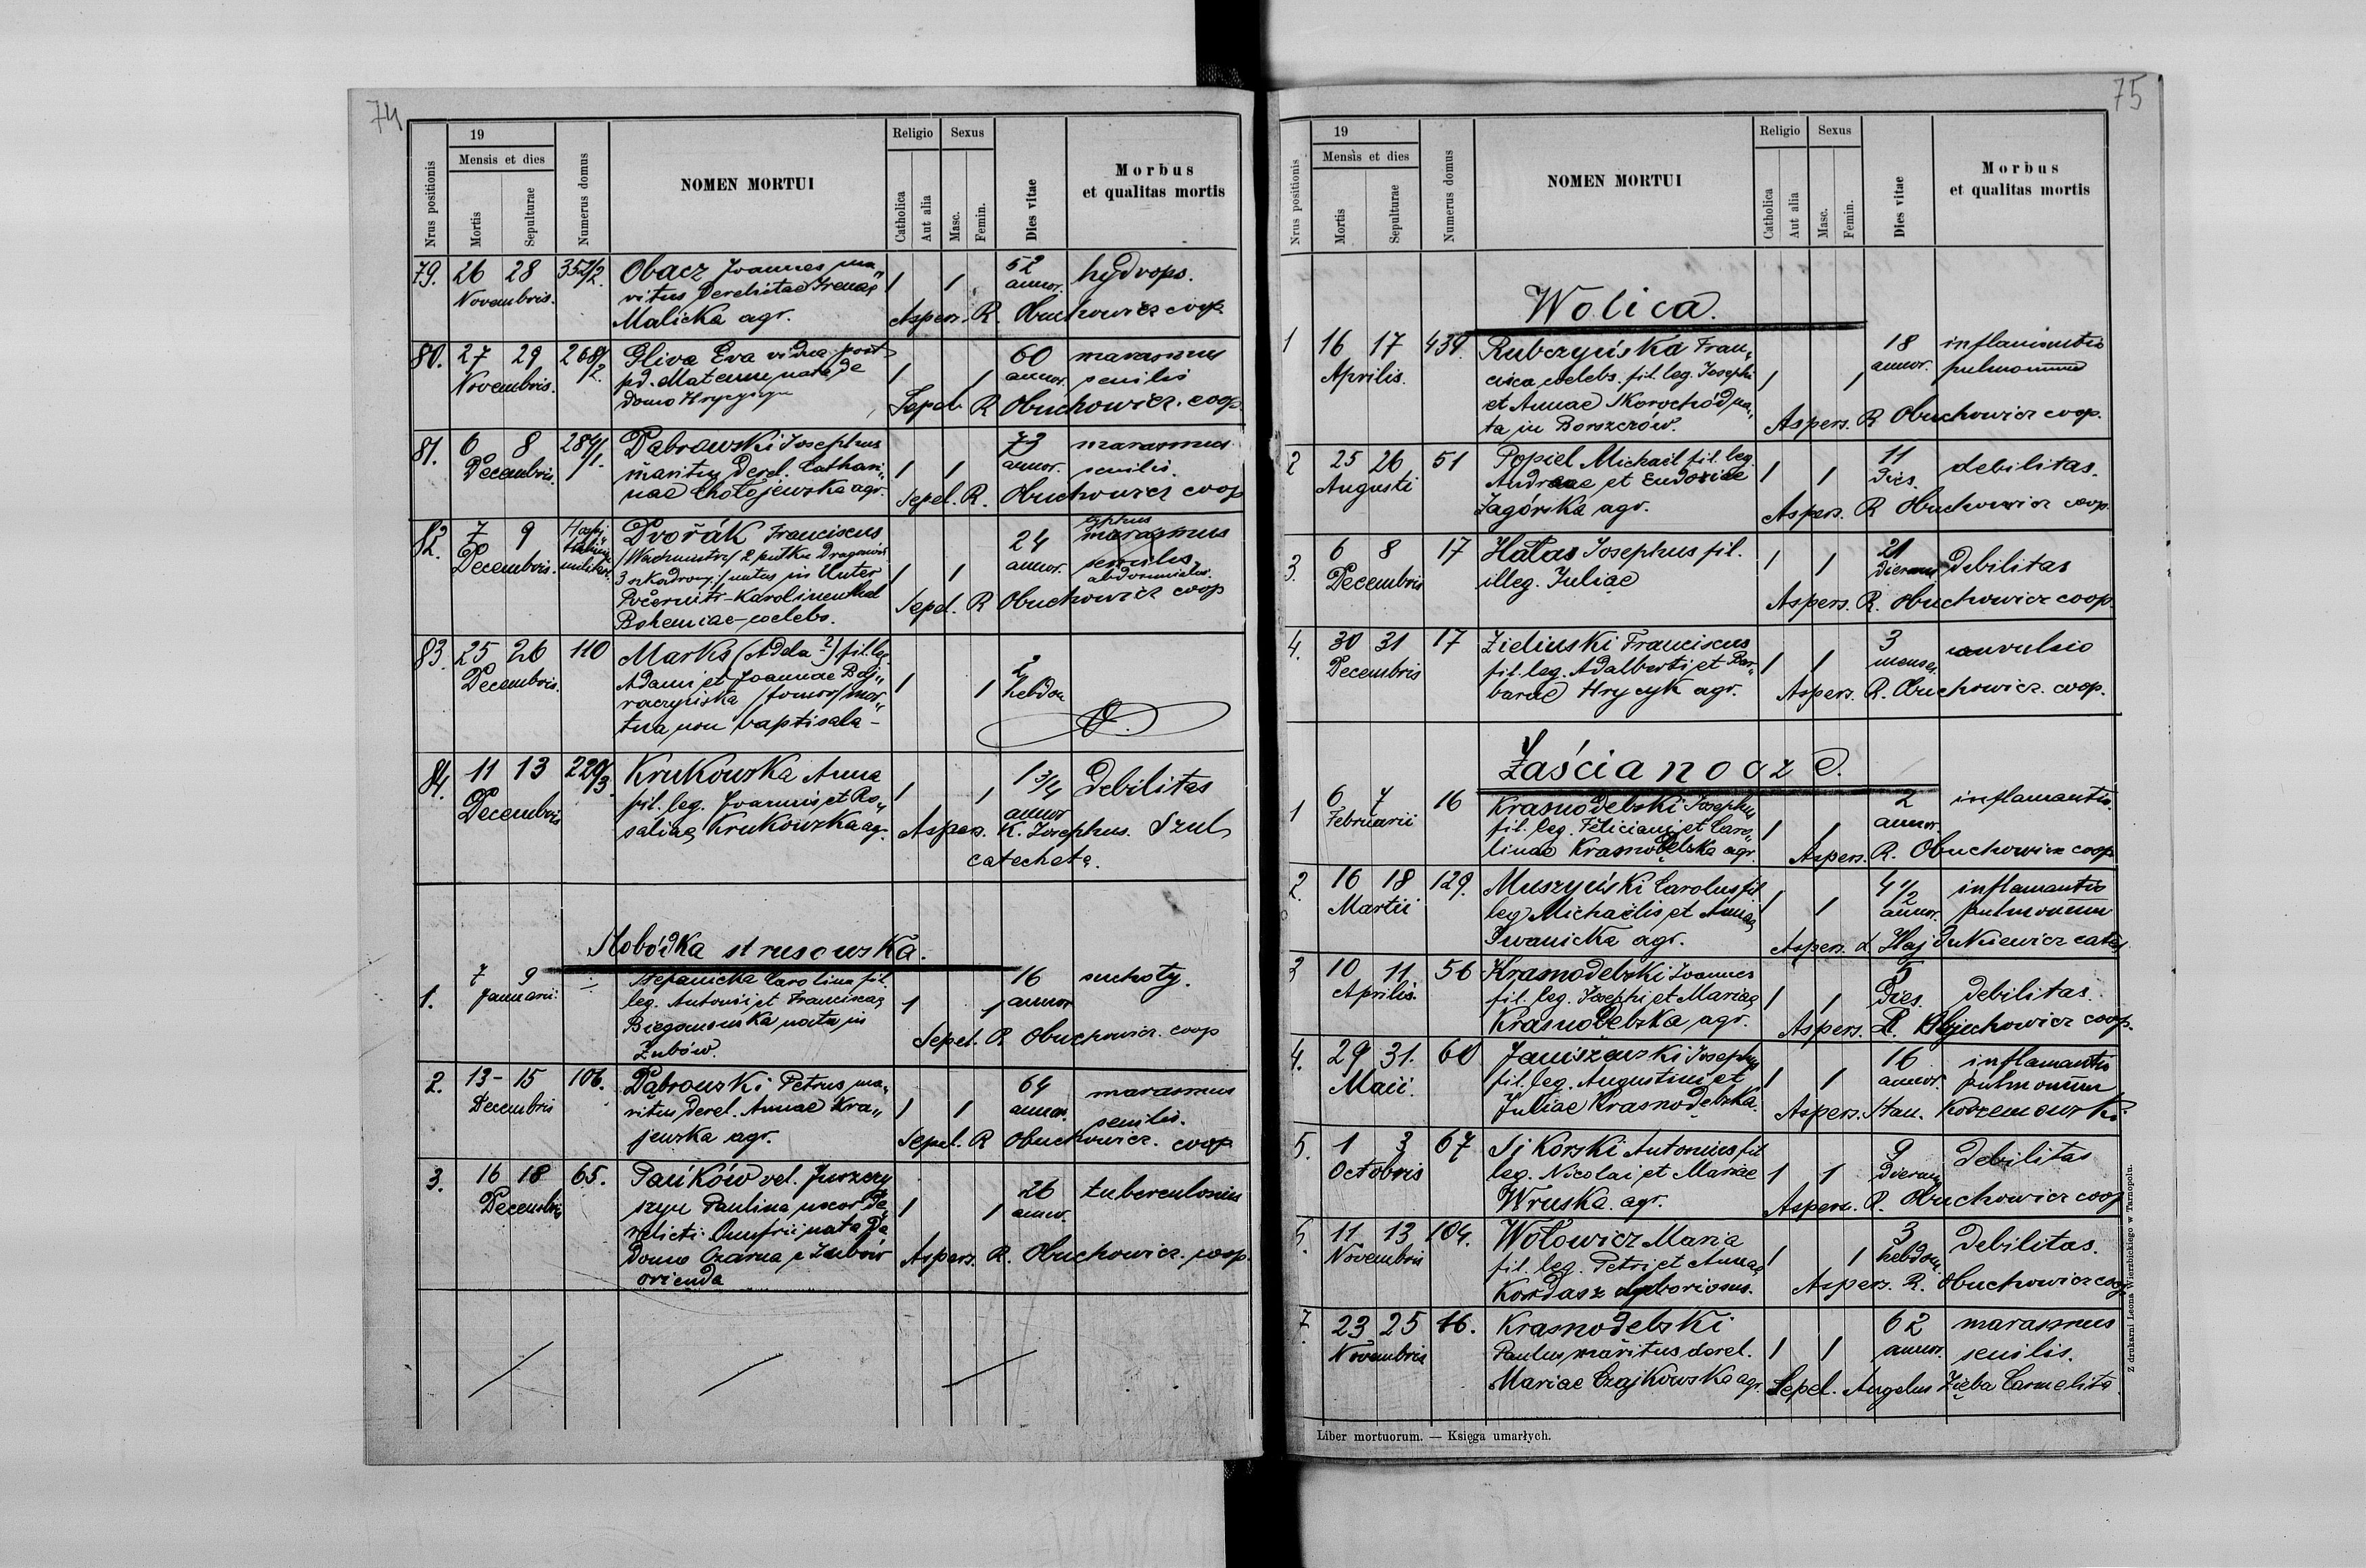 74
19
Religio Sexus
Mensis et dies
Nrus positionis
Mortis
Sepulturae
Numerus domus
NOMEN MORTUI
Catholica
Aut alia
Masc.
Femin.
Dies vitae
Morbus
et qualitas mortis
79. 26 28 352/2. Obacz Joannes ma„ 1 1 52 hydrops.
Novembris. ritus derelictae Irenae annor.
Malicka agr. Aspers. R. Obuchowicz coop.
80. 27 29 268/2. Gliva Eva vidua post 60 marasmus
Novembris. pd. Mateum nata de 1 1 annor. senilis
domo Sepel. R Obuchowicz. coop
81. 6 8 284/1. Dąbrowski Josephus 73 marasmus
Decembris. maritus derel. Cathari„ 1 1 annor. senilis.
nae Chołojewska agr. Sepel. R. Obuchowicz coop
82. 7 9 Dvořák Franciscus 24 typhus marasmus
Decembris. /Wachmistrz/ 2 pułku Dragonów annor. senilis
3 szkadrony / natus in Unter 1 1 abdominalis.
Počernitz-Karolinenthal Sepel. R Obuchowicz coop
Bohemiae-coelebs.
83. 25 26 110 Marks (Adela?) fil. leg.
Decembris. Adami et Joannae Baj„ 1 1 2 hebdom
raczyńska /fornor/ mor„
tua non baptisata-
84. 11 13 229/3. Krukowska Anna 1 3/4 debilitas
Decembris fil. leg. Joannis et Ro„ 1 1 annor
saliae Krukowska ag. Aspers. K. Josephus Szul
catecheta.
Słobódka strusowska.
1. 7 9 Szepanicka Carolina fil. 16 suchoty.
Januarii leg. Antonii et Franciscae 1 1 annor
Bieganowska nata in Sepel. R Obuchowicz. coop
Zubów.
2. 13- 15 106. Dąbrowski Petrus ma„ 64 marasmus
Decembris ritus derel. Annae Kra„ 1 1 annor. senilis.
jewska agr. Sepel. R Obuchowicz. coop
3. 16 18 65. Pańków vel. Jurzczy 26 tuberculosius
Decembris szyn Paulina uxor de 1 1 annor.
relicti Onufrii nata de
domo Czarna e Zubów Aspers. R. Obuchowicz. coop.
orienda
75
19
Religio Sexus
Mensis et dies
Nrus positionis
Mortis
Sepulturae
Numerus domus
NOMEN MORTUI
Catholica
Aut alia
Masc.
Femin.
Dies vitae
Morbus
et qualitas mortis
Wolica.
1 16 17 439. Rubczyńska Fran„ 18 inflamantio
Aprilis. cisca coelebs. fil. leg. Josephi 1 1 annor. pulmonum
et Annae Skorochód na„
ta in Borszczów. Aspers. R Obuchowicz coop.
2 25 26 51 Popiel Michail fil. leg. 1 1 11 debilitas.
Augusti Andreae et Eudoxiae Dies.
Zagórska agr. Aspers. R Obuchowicz coop.
3. 6 8 17 Hałas Josephus fil. 1 1 21 debilitas
Decembris illeg. Juliae dierum
Aspers. R. Obuchowicz coop.
4. 30 31 17 Zielinski Franciscus 3 convulsio
Decembris fil. leg. Adalberti et Bar„ 1 1 menses
barae Hrycyk agr. Aspers. R. Obuchowicz. coop.
Zaścianocze.
1 6 7 16 Krasnodebski Josephus 2 inflamantio.
Februarii fil. leg. Feliciani et Caro„ 1 1 annor.
linae Krasnodębska agr. Aspers. R. Obuchowicz coop
2. 16 18 129. Muszyński Carolus fil 1 1 4 1/2 inflamantio
Martii leg Michaelis et Annae annor. pulmonum
Iwanicka agr. Aspers. Hajdukiewicz
3 10 11 56 Krasnodebski Joannes 5 debilitas.
Aprilis. fil. leg. Josephi et Mariae 1 1 Dies.
Krasnodebska agr. Aspers. R. Obuchowicz coop.
4. 29 31. 60 Janiszewski Josephus 16 inflamantio
Maii. fil. leg. Augustini et 1 1 annor. pulmonum
Juliae Krasnodebska. Aspers. Stan. Korzeniowski
5. 1 3 67 Sikorski Antonius fil 9 debilitas
Octobris leg. Nicolai et Mariae 1 1 dierum
Wruska. agr. Aspers. R. Obuchowicz coop
6. 11 13 104. Wołowicz Maria 3 debilitas.
Novembris fil. leg. Petri et Annae 1 1 hebdom.
Kordasz laboriosus. Aspers. R. Obuchowicz coop.
7. 23 25 16. Krasnodebski 62 marasmus
Novembris Paulus maritus derel. 1 1 annor. senilis.
Mariae Czajkowska agr. Sepel. Angelus Zięba Carmelita
Liber mortuorum. — Księga umarłych.
Z drukarni Leona Wierzbickiego w Tarnopolu.